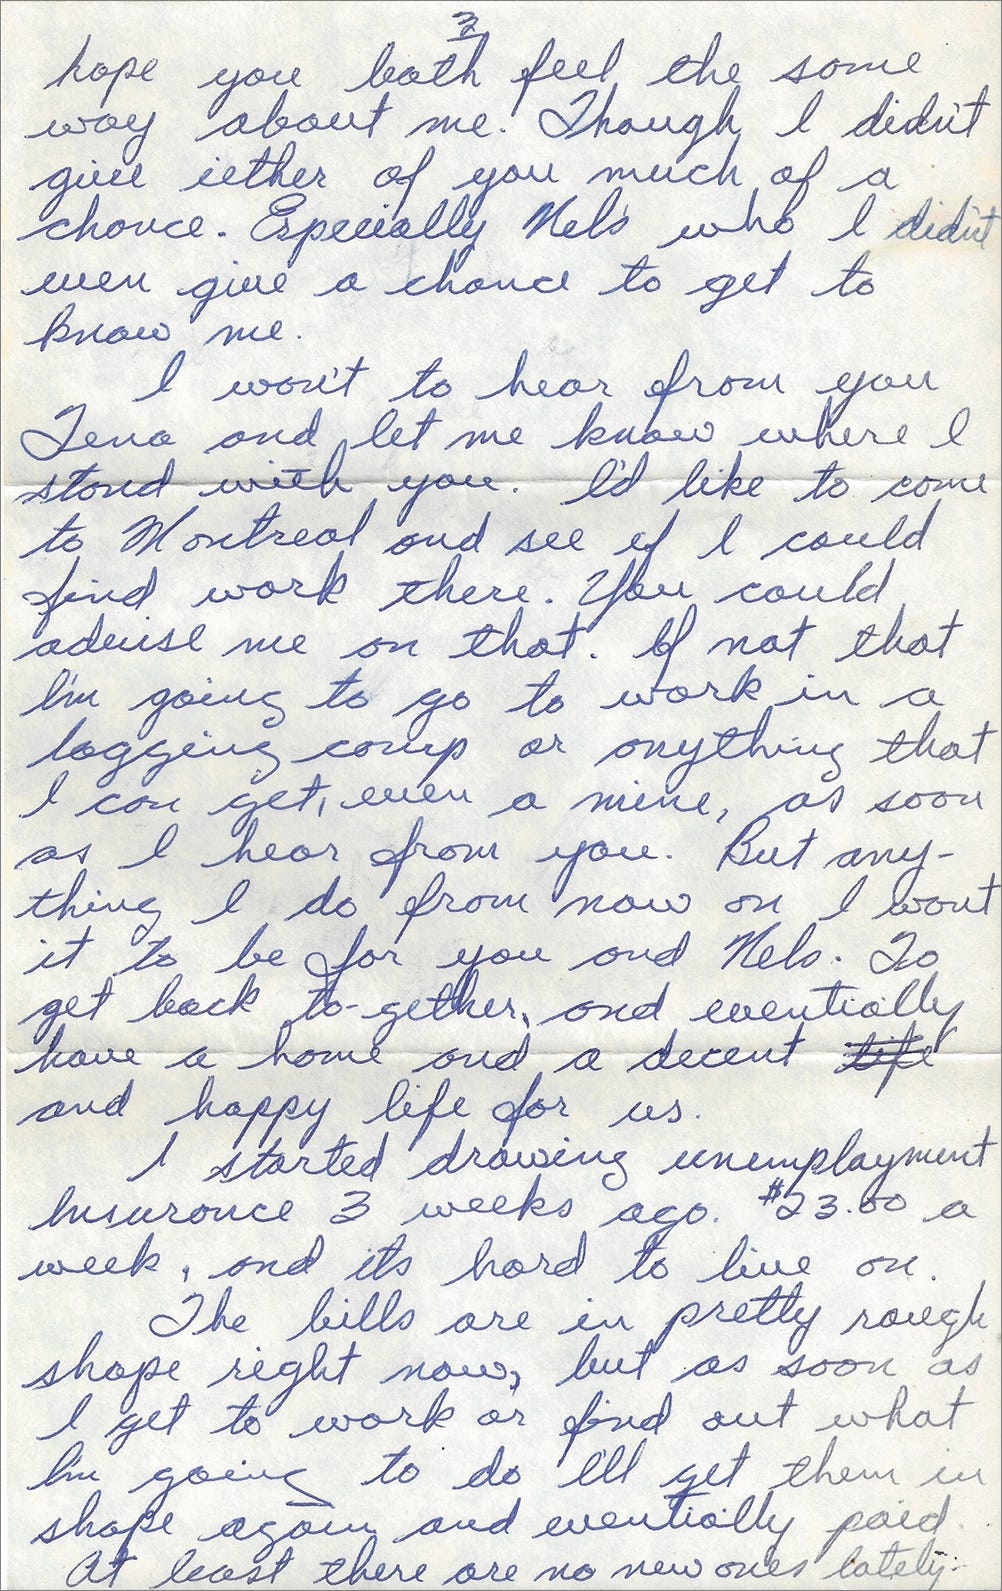 3
hope you both feel the same
way about me. Though I didn't
give iether of you much of a
chance. Especially Nels who I didn't
even give a chance to get to
know me.
I won't to hear from you
Tena and let me know where I
stand with you. I'd like to come
to Montreal and see if I could
find work there. You could
advise me on that. If not that
I'm going to go to work in a
logging camp or anything that
I can get, even a mine, as soon
as I hear from you. But any-
thing I do from now on I wont
it to be for you and Nels. To
get back to-gether, and eventially
have a home and a decent life
and happy life for us.
I started drawing unemployment
Insurance 3 weeks ago. $23.00 a
week, and its hard to live on.
The bills are in pretty rough
shape right now, but as soon as
I get to work or find out what
I'm going to do I'll get them in
shape again and eventially paid.
At least there are no new ones lately.